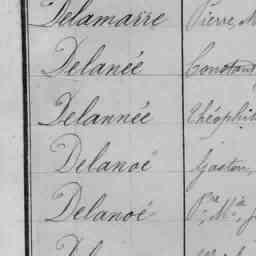 Delamarre Pierre, M
Delanée Constant
Delannée Théophil
Delanoë Gaston,
Delanoë Pre, Mie, J